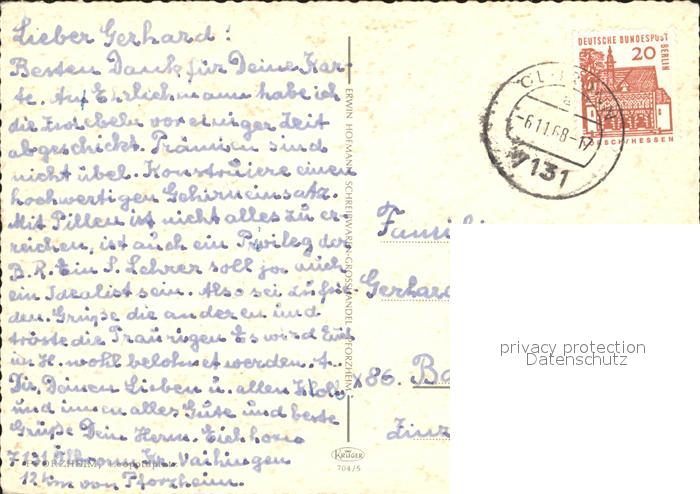 Lieber Gerhard!
Besten Dank für Deine Kar-
te. An Ehrlichmann habe ich
die Zwiebeln vor einiger Zeit
abgeschickt. Prämien sind
nicht übel. Konstruiere einen
hochwertigen Gehirneinsatz.
Mit Pillen ist nicht alles zu er
reichen, ist auch ein Privileg der
B.R. Ein S. Lehrer soll ja auch
ein Idealist sein. Also sei zufrie
den. Grüße die anderen und
tröste die Traurigen Es wird Euch
im H. wohl belohnet werden.
Dir, Deinen Lieben u. allen
und immer alles Gute und beste
Grüße Dein Herm. Eichhorn
7131 Kr. Vaihingen
12 km von Pforzheim.
PFORZHEIM, Leopoldplatz
ERWIN HOFMANN SCHREIBWAREN-GROSSHANDEL PFORZHEIM
KRÜGER
704/5
DEUTSCHE BUNDESPOST
BERLIN
20
LORSCH/HESSEN
-6.11.68-17
7131
Familie
Gerhard
x86. Ba
privacy protection
Datenschutz